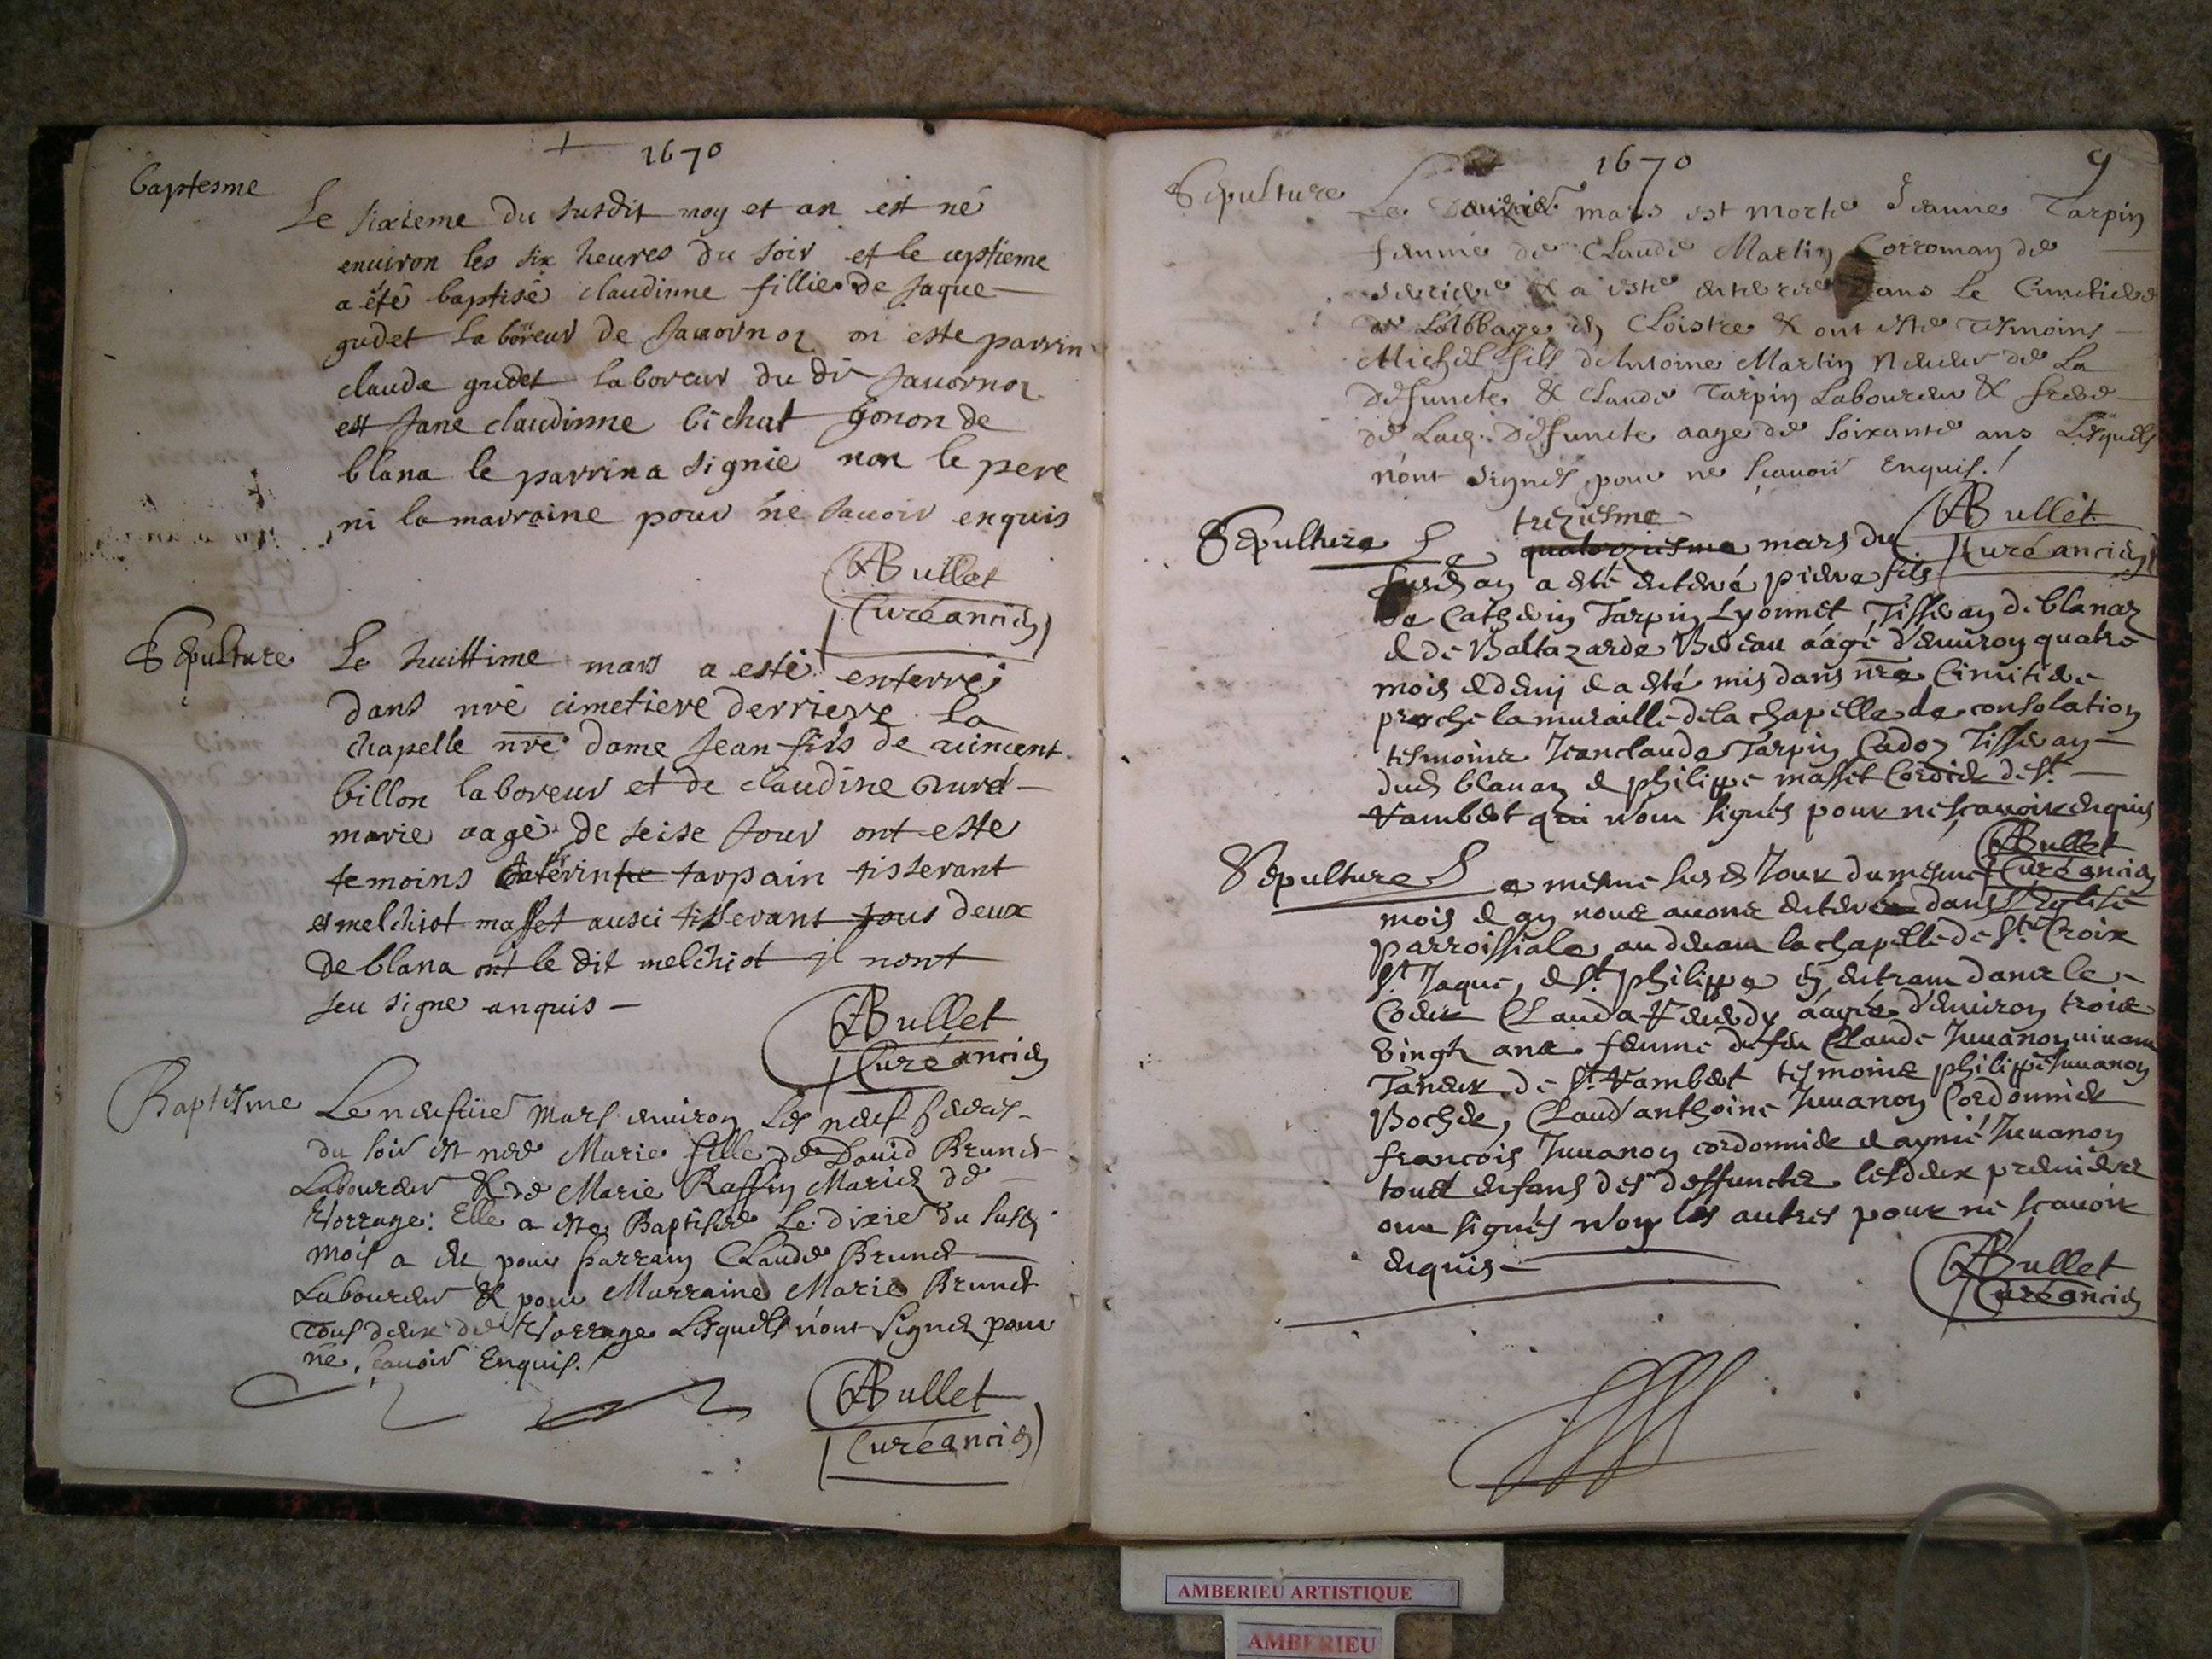 1670
baptesme
Le sixieme du susdit moy et an est né
enuiron les six heures du soir et le ceptieme
a été baptisé claudinne fillie de Jaque
gudet laboreur de Jauornoz on este parrin
claude gudet laboreur du di Jauornoz
est Jane claudinne bichat gonon de
blana le parrin a signie non le pere
ni la marraine pour ne sauoir enquis
Bullet
Curé ancien
Sepulture
Le huittime mars a esté enterré
dans nrē cimetiere derriere la
chapelle nrē dame Jean fils de uincent
billon laboreur et de claudine
marie aagé de seise Jour ont este
temoins tarpain tisserant
et melchiot masset ausci tisserant tous deux
de blana ont le dit melchiot jl nont
seu signe enquis
Bullet
Curé ancien
Baptesme
Le neufuie mars enuiron Les neuf heures
du soir est nee Marie fille de Dauid Brunet
Laboureur & de Marie Raffin Mariez de
Vorrage: Elle a esté Baptisee Le dixie du susd.
mois a eu pour parrain Claude Brunet
Laboureur & pour Marraine Marie Brunet
Tous deux de Vorrage Lesquels n'ont signer pour
ne scauoir Enquis.
Bullet
Curé ancien
1670
9
Sepulture
Le mars est morte Jeanne Tarpin
femme de Claude Martin Corroman de
& a esté enterree dans Le Cimetiere
de L'Abbaye en Cloistre & ont esté Tesmoins
Michel fils d'Antoine Martin Neueu de La
Defuncte & Claude Tarpin Laboureur & frere
de Lad. Defuncte aage de soixante ans Lesquels
n'ont signés pour ne scauoir Enquis.
Bullet
Curé ancien
Sepulture
treziesme
Le quatorziesme mars du
susd an a esté enterré pierre fils
de Catherin Tarpin Lyonnet Tisseran de blanaz
& de Baltazarde Bereau aagé d'enuiron quatre
mois & demj & a esté mis dans nrē Cimitiere
proche la muraille de la chapelle de consolation
tesmoins Jean claude Tarpin Cadoz Tisseran
dud blanaz & philippe masset Cordier de St
Rambert qui n'ont signés pour ne scauoir enquis
Bullet
Curé ancien
Sepulture
Le mesme susd Jour du mesme
mois & an nous auons enterré dans l'Eglise
parroissiale au deuant la chapelle de Ste Croix
St Jaque, & St philippe en entrant dans le
Coeur Clauda aagée d'enuiron trois
vingts ans femme de feu Claude Juuanon viuant
Taneur de St Rambert tesmoins philippe Juuanon
Bocher, Claud'anthoine Juuanon Cordonnier
francois Juuanon cordonnier & aymé Juuanon
tous enfans des deffuncts les deux premiers
ont signés non les autres pour ne scauoir
enquis
Bullet
Curé ancien
AMBERIEU ARTISTIQUE
AMBERIEU